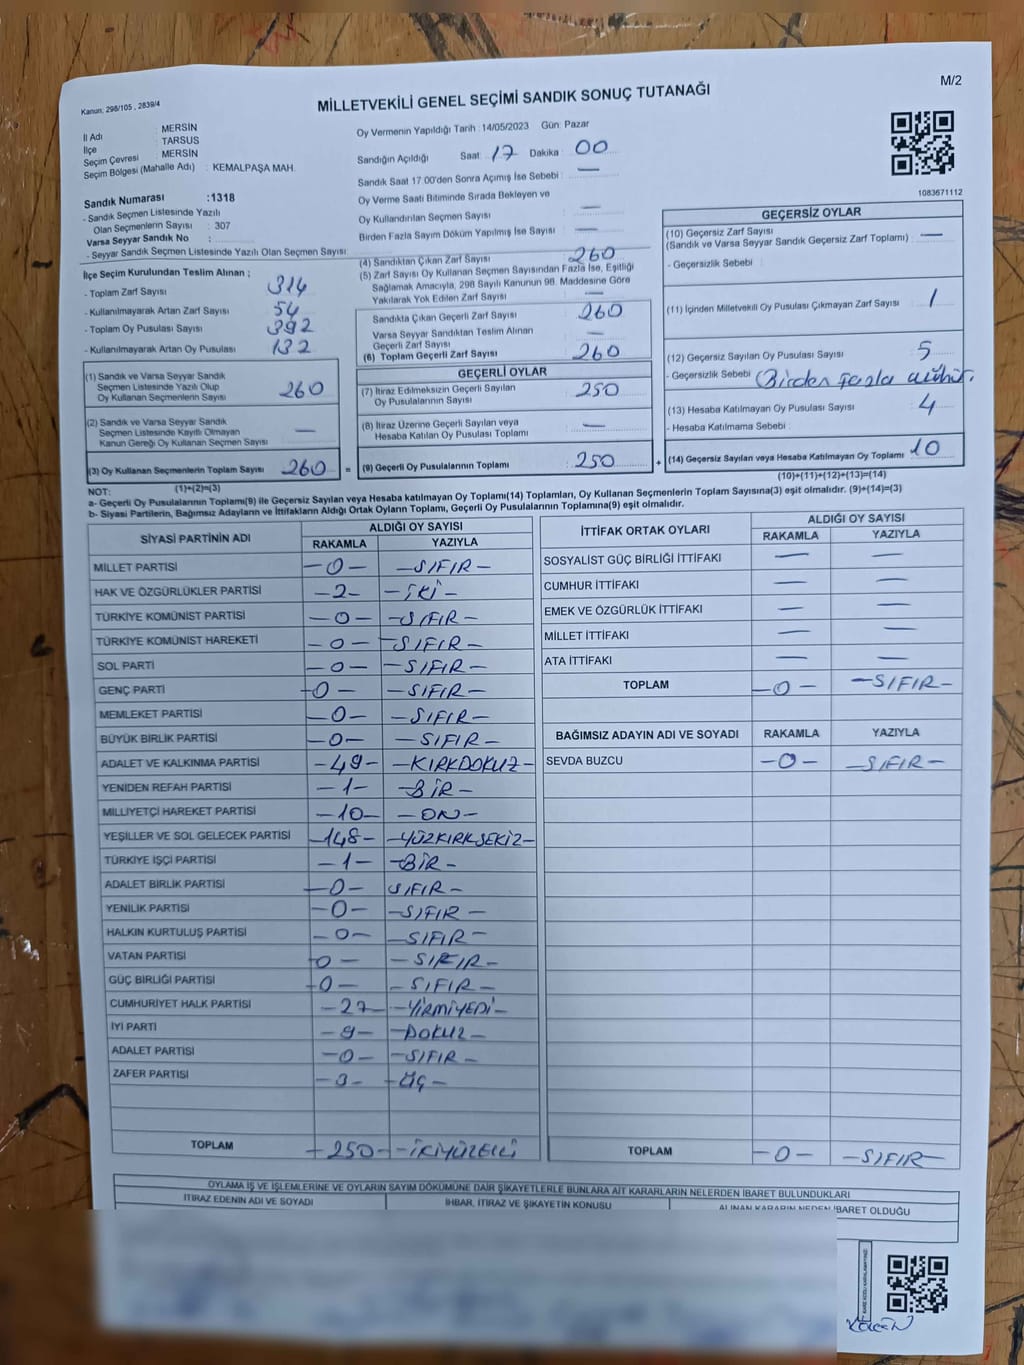 M/2
Kanun: 298/105 , 2839/4
MİLLETVEKİLİ GENEL SEÇİMİ SANDIK SONUÇ TUTANAĞI
İl Adı : MERSİN
İlçe : TARSUS
Seçim Çevresi : MERSİN
Seçim Bölgesi (Mahalle Adı) : KEMALPAŞA MAH.
Sandık Numarası :1318
- Sandık Seçmen Listesinde Yazılı
Olan Seçmenlerin Sayısı : 307
Varsa Seyyar Sandık No :
- Seyyar Sandık Seçmen Listesinde Yazılı Olan Seçmen Sayısı :
İlçe Seçim Kurulundan Teslim Alınan ;
- Toplam Zarf Sayısı 314
- Kullanılmayarak Artan Zarf Sayısı : 54
- Toplam Oy Pusulası Sayısı : 392
- Kullanılmayarak Artan Oy Pusulası : 132
(1) Sandık ve Varsa Seyyar Sandık
Seçmen Listesinde Yazılı Olup
Oy Kullanan Seçmenlerin Sayısı : 260
(2) Sandık ve Varsa Seyyar Sandık
Seçmen Listesinde Kayıtlı Olmayan
Kanun Gereği Oy Kullanan Seçmen Sayısı : —
(3) Oy Kullanan Seçmenlerin Toplam Sayısı : 260 =
(1)+(2)=(3)
Oy Vermenin Yapıldığı Tarih : 14/05/2023 Gün: Pazar
Sandığın Açıldığı Saat: 17 Dakika : 00
Sandık Saat 17:00'den Sonra Açımış İse Sebebi : —
Oy Verme Saati Bitiminde Sırada Bekleyen ve
Oy Kullandırılan Seçmen Sayısı : —
Birden Fazla Sayım Döküm Yapılmış İse Sayısı : —
(4) Sandıktan Çıkan Zarf Sayısı : 260
(5) Zarf Sayısı Oy Kullanan Seçmen Sayısından Fazla İse, Eşitliği
Sağlamak Amacıyla, 298 Sayılı Kanunun 98. Maddesine Göre
Yakılarak Yok Edilen Zarf Sayısı : —
Sandıkta Çıkan Geçerli Zarf Sayısı : 260
Varsa Seyyar Sandıktan Teslim Alınan
Geçerli Zarf Sayısı : —
(6) Toplam Geçerli Zarf Sayısı : 260
GEÇERLİ OYLAR
(7) İtiraz Edilmeksizin Geçerli Sayılan
Oy Pusulalarının Sayısı : 250
(8) İtiraz Üzerine Geçerli Sayılan veya
Hesaba Katılan Oy Pusulası Toplamı : —
(9) Geçerli Oy Pusulalarının Toplamı : 250 +
1083671112
GEÇERSİZ OYLAR
(10) Geçersiz Zarf Sayısı
(Sandık ve Varsa Seyyar Sandık Geçersiz Zarf Toplamı) : —
- Geçersizlik Sebebi :
(11) İçinden Milletvekili Oy Pusulası Çıkmayan Zarf Sayısı : 1
(12) Geçersiz Sayılan Oy Pusulası Sayısı : 5
- Geçersizlik Sebebi : Birden fazla mühür.
(13) Hesaba Katılmayan Oy Pusulası Sayısı : 4
- Hesaba Katılmama Sebebi :
(14) Geçersiz Sayılan veya Hesaba Katılmayan Oy Toplamı : 10
(10)+(11)+(12)+(13)=(14)
NOT:
a- Geçerli Oy Pusulalarının Toplamı(9) ile Geçersiz Sayılan veya Hesaba katılmayan Oy Toplamı(14) Toplamları, Oy Kullanan Seçmenlerin Toplam Sayısına(3) eşit olmalıdır. (9)+(14)=(3)
b- Siyasi Partilerin, Bağımsız Adayların ve İttifakların Aldığı Ortak Oyların Toplamı, Geçerli Oy Pusulalarının Toplamına(9) eşit olmalıdır.
SİYASİ PARTİNİN ADI ALDIĞI OY SAYISI
RAKAMLA YAZIYLA
MİLLET PARTİSİ -0- -SIFIR-
HAK VE ÖZGÜRLÜKLER PARTİSİ -2- -İKİ-
TÜRKİYE KOMÜNİST PARTİSİ -0- -SIFIR-
TÜRKİYE KOMÜNİST HAREKETİ -0- -SIFIR-
SOL PARTİ -0- -SIFIR-
GENÇ PARTİ -0- -SIFIR-
MEMLEKET PARTİSİ -0- -SIFIR-
BÜYÜK BİRLİK PARTİSİ -0- -SIFIR-
ADALET VE KALKINMA PARTİSİ -49- -KIRKDOKUZ-
YENİDEN REFAH PARTİSİ -1- -BİR-
MİLLİYETÇİ HAREKET PARTİSİ -10- -ON-
YEŞİLLER VE SOL GELECEK PARTİSİ -148- -YÜZKIRKSEKİZ-
TÜRKİYE İŞÇİ PARTİSİ -1- -BİR-
ADALET BİRLİK PARTİSİ -0- SIFIR-
YENİLİK PARTİSİ -0- -SIFIR-
HALKIN KURTULUŞ PARTİSİ -0- -SIFIR-
VATAN PARTİSİ -0- -SIFIR-
GÜÇ BİRLİĞİ PARTİSİ -0- -SIFIR-
CUMHURİYET HALK PARTİSİ -27- -YİRMİYEDİ-
İYİ PARTİ -9- -DOKUZ-
ADALET PARTİSİ -0- -SIFIR-
ZAFER PARTİSİ -3- -ÜÇ-
TOPLAM -250- -İKİYÜZELLİ
İTTİFAK ORTAK OYLARI ALDIĞI OY SAYISI
RAKAMLA YAZIYLA
SOSYALİST GÜÇ BİRLİĞİ İTTİFAKI — —
CUMHUR İTTİFAKI — —
EMEK VE ÖZGÜRLÜK İTTİFAKI — —
MİLLET İTTİFAKI — —
ATA İTTİFAKI — —
TOPLAM -0- -SIFIR-
BAĞIMSIZ ADAYIN ADI VE SOYADI RAKAMLA YAZIYLA
SEVDA BUZCU -0- -SIFIR-
TOPLAM -0- -SIFIR-
OYLAMA İŞ VE İŞLEMLERİNE VE OYLARIN SAYIM DÖKÜMÜNE DAİR ŞİKAYETLERLE BUNLARA AİT KARARLARIN NELERDEN İBARET BULUNDUKLARI
İTİRAZ EDENİN ADI VE SOYADI İHBAR, İTİRAZ VE ŞİKAYETİN KONUSU ALINAN KARARIN NEDEN İBARET OLDUĞU